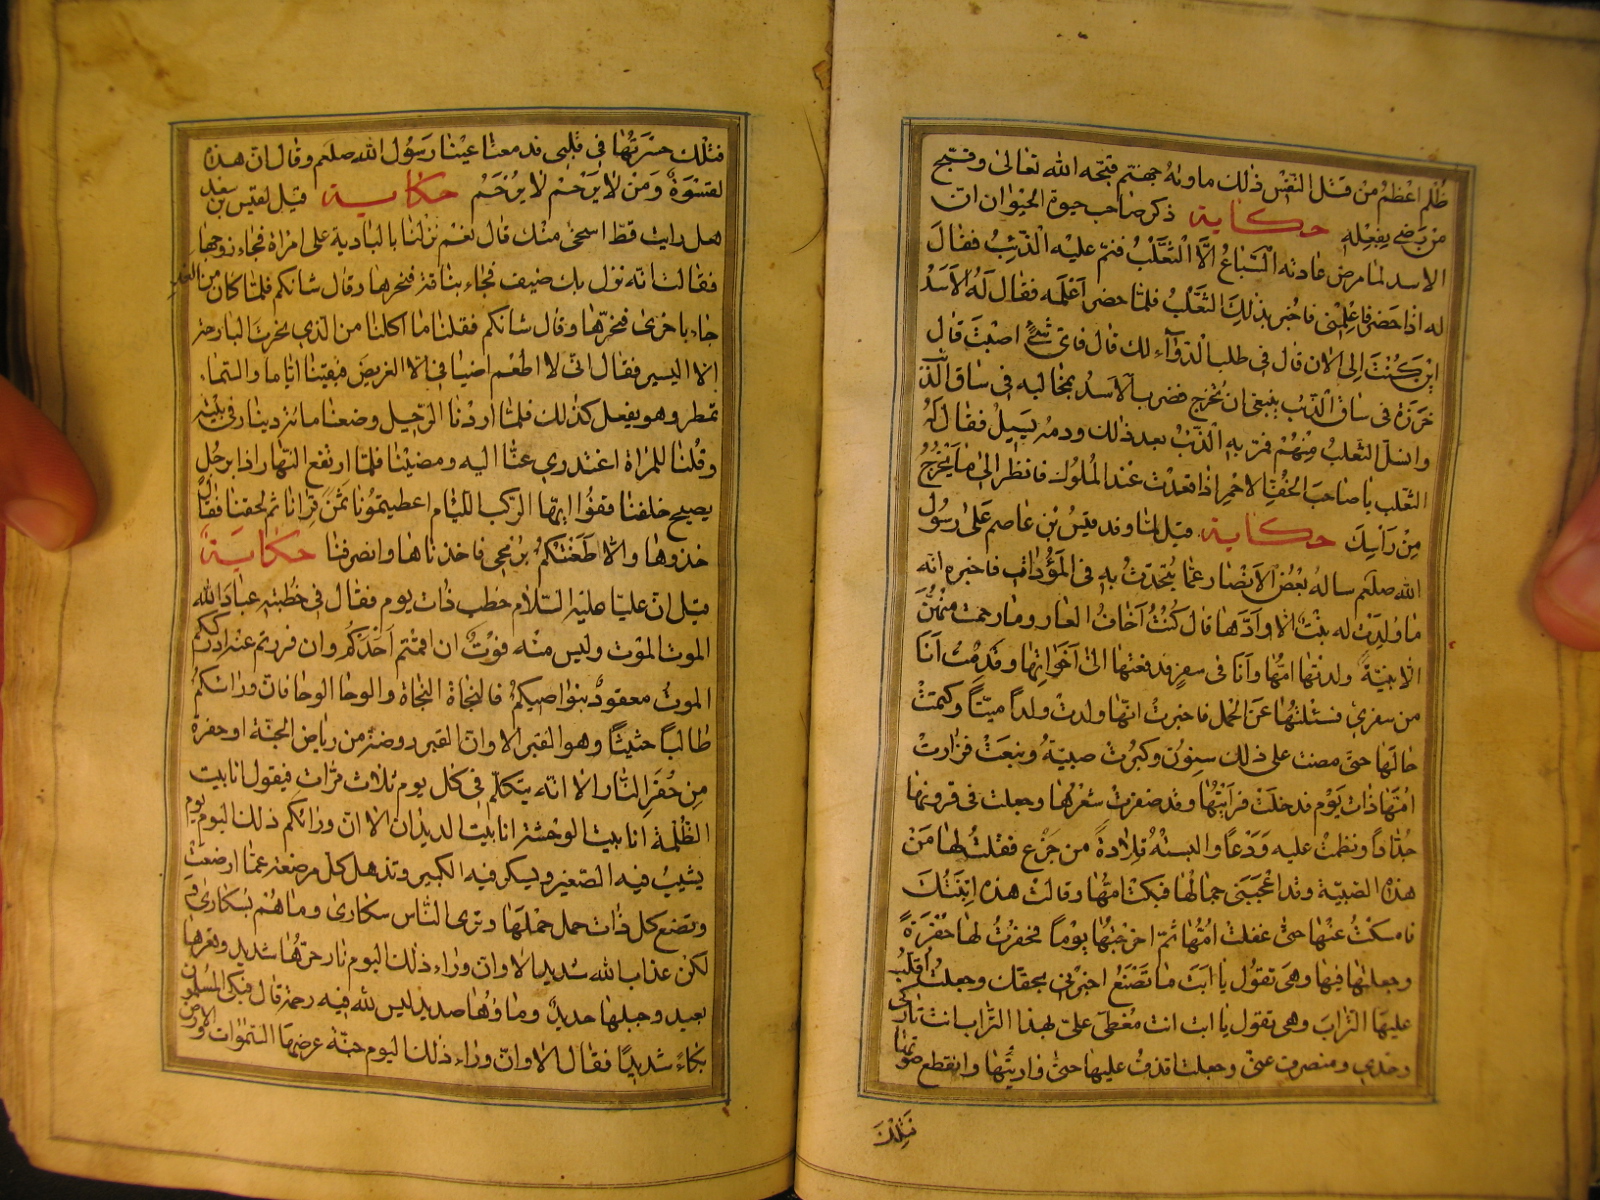 ظلم اعظم من قتل النفس ذلك ماوئه جهنم قبحه الله تعالى وقبح
من رضى بفعله حكاية ذكر صاحب حيوة الحيوان ان
الاسد لما مرض عادته السباع الا الثعلب فنم عليه الذئب فقال
له اذا حضر فاعلمنى فاخبر بذلك الثعلب فلما حضر اعلمه فقال له الاسد
اين كنت الى الان قال فى طلب الدوآء لك قال فاى شئ اصبت قال
خرزة فى ساق الذئب ينبغى ان تخرج فضرب الاسد بمخاليبه فى ساق الذئب
وانسل الثعلب منهم فمر به الذئب بعد ذلك ودمه يسيل فقال له
الثعلب يا صاحب الخف الاحمر اذا قعدت عند الملوك فانظر الى ما يخرج
من رأسك حكاية قيل لما وفد قيس بن عاصم على رسول
الله صلعم ساله بعض الانصار عما يتحدث به فى المؤدات فاخبره انه
ما ولدت له بنت الا وأدها قال كنت اخاف العار وما رحمت منهن
الا بنية ولدتها امها وانا فى سفر فدفعتها الى اخواتها وقدمت انا
من سفرى فسئلتها عن الحمل فاخبرت انها ولدت ولداً ميتاً وكتمت
حالها حتى مضت على ذلك سنون وكبرت صبية وينعت فزارت
امها ذات يوم فدخلت فرأيتها وقد ضفرت شعرها وجعلت فى قرونها
ونظمت عليه ودعاً والبسته قلادة من جزع فقلت لها من
هذه الصبية وقد اعجبنى جمالها فبكت امها وقالت هذه ابنتك
فامسكت عنها حتى غفلت امها ثم اخرجتها يوماً فحفرت لها حفرة
وجعلتها فيها وهى تقول يا ابت ما تصنع اخبرنى بحقك وجعلت اقلب
عليها التراب وهى تقول يا ابت انت مغطى على بهذا التراب انت تاركى
وحدى ومنصرف عنى وجعلت اقذف عليها حتى واريتها وانقطع صوتها
فتلك
فتلك حسرتها فى قلبى فدمعتا عينا رسول الله صلعم وقال ان هذه
لقسوة ومن لا يرحم لا يرحم حكاية قيل لقيس بن سعد
هل رايت قط اسخى منك قال نعم نزلنا بالبادية على امراة فجاء زوجها
فقالت انه نزل بك ضيف فجاء بناقة فنحرها وقال شانكم فلما كان من الغد
جاء باخرى فنحرها وقال شانكم فقلنا ما اكلنا من الذى نحرت البارحة
الا اليسير فقال انى لا اطعم اضيافى الا الغريض فبقينا اياما والسماء
تمطر وهو يفعل كذلك فلما اردنا الرحيل وضعنا مائة دينار فى بيته
وقلنا للمراة اعتذرى عنا اليه ومضينا فلما ارتفع النهار اذا برجل
يصيح خلفنا قفوا ايها الركب اللئام اعطيتمونا ثمن قرانا ثم لحقنا فقال
خذوها والا طعنتكم برمحى فاخذناها وانصرفنا حكاية
قيل ان عليا عليه السلام خطب ذات يوم فقال فى خطبته عباد الله
الموت الموت وليس منه فوت ان اقمتم اخذكم وان فررتم عنه ادرككم
الموت معقود بنواصيكم فالنجاة النجاة والوحا الوحا فان ورائكم
طالباً حثيثاً وهو القبر الا وان القبر روضة من رياض الجنة او حفرة
من حفر النار الا انه يتكلم فى كل يوم ثلاث مرات فيقول انا بيت
الظلمة انا بيت الوحشة انا بيت الديدان الا ان ورائكم ذلك اليوم يوم
يشيب فيه الصغير ويسكر فيه الكبير وتذهل كل مرضعة عما ارضعت
وتضع كل ذات حمل حملها وترى الناس سكارى وما هم بسكارى و
لكن عذاب الله شديد الا وان وراء ذلك اليوم نار حرها شديد وقعرها
بعيد وجبلها حديد وماؤها صديد ليس لله فيه رحمة قال فبكى المسلمون
بكاءً شديدًا فقال الا وان وراء ذلك اليوم جنة عرضها السموات والارض